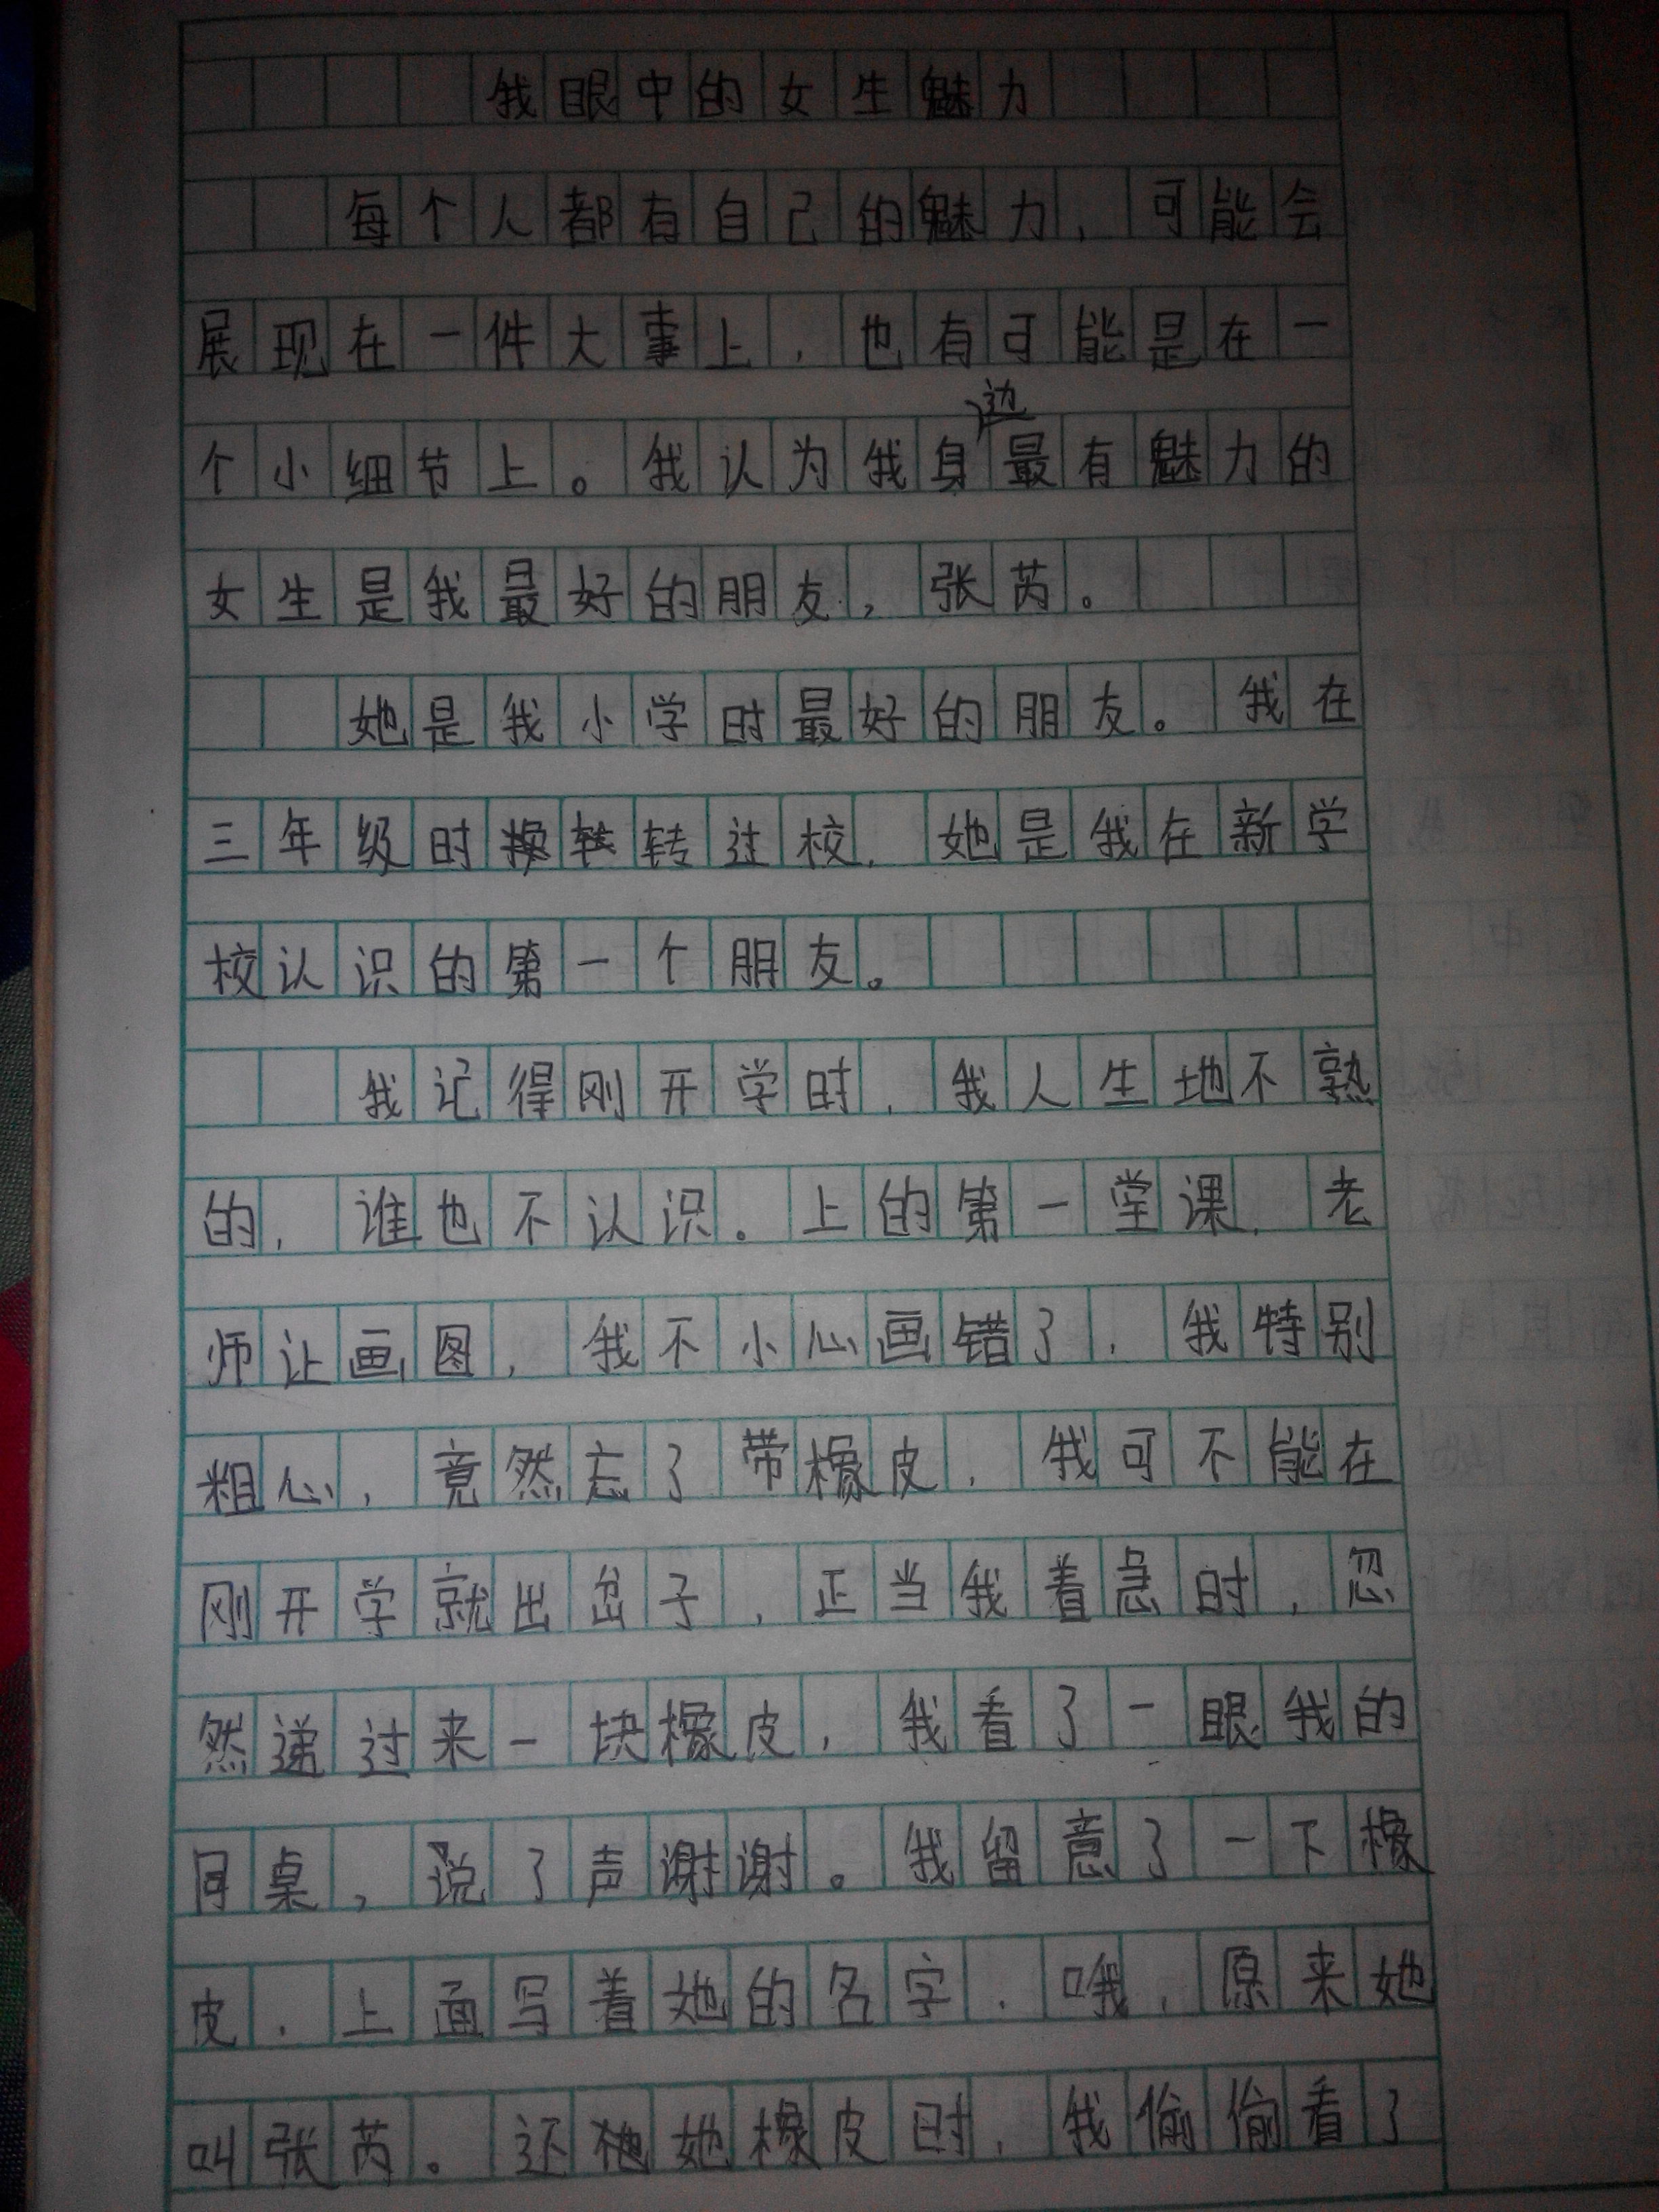 我眼中的女生魅力
每个人都有自己的魅力,可能会
展现在一件大事上,也有可能是在一
个小细节上。我认为我身边最有魅力的
女生是我最好的朋友,张芮。
她是我小学时最好的朋友。我在
三年级时转过校,她是我在新学
校认识的第一个朋友。
我记得刚开学时,我人生地不熟
的,谁也不认识。上的第一堂课,老
师让画图,我不小心画错了,我特别
粗心,竟然忘了带橡皮,我可不能在
刚开学就出岔子,正当我着急时,忽
然递过来一块橡皮,我看了一眼我的
同桌,说了声谢谢。我留意了一下橡
皮,上面写着她的名字,哦,原来她
叫张芮。还她橡皮时,我偷偷看了